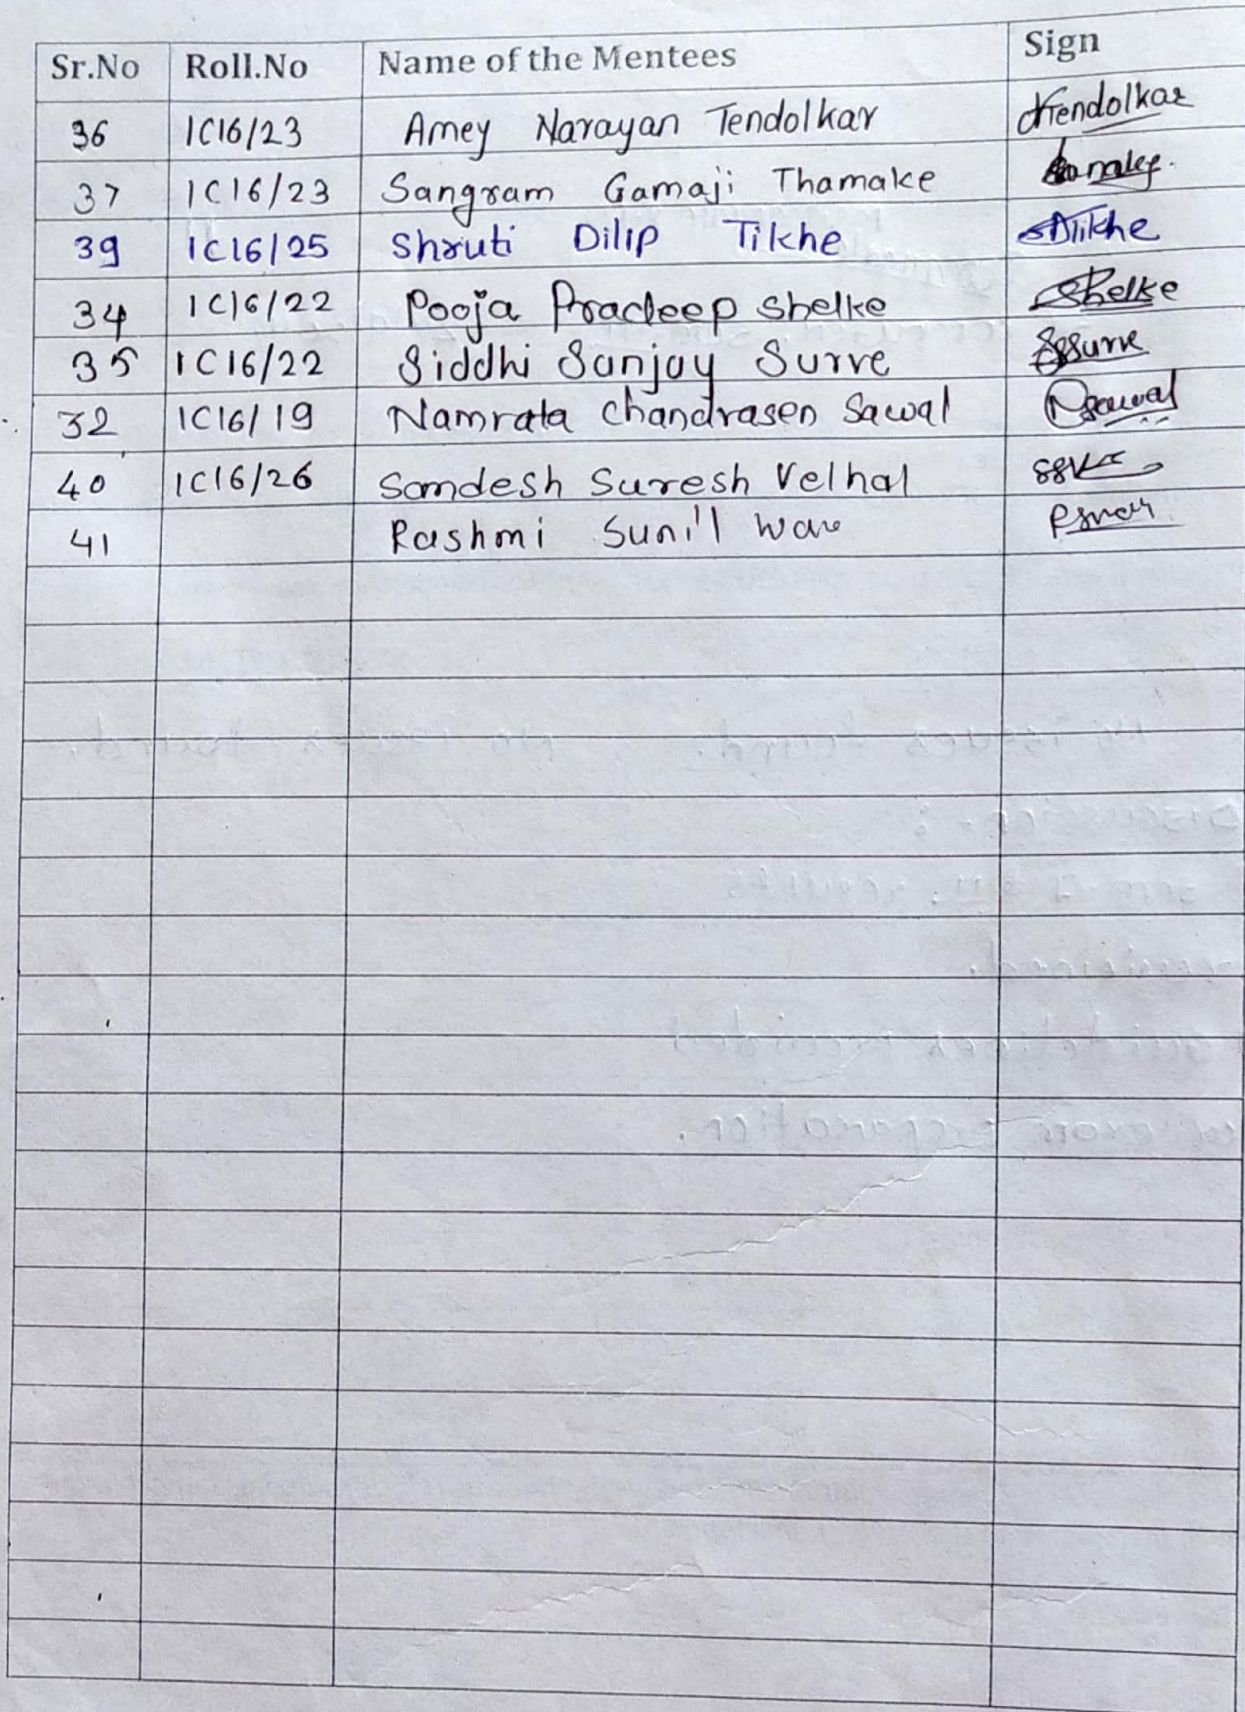 Sr.No Roll.No Name of the Mentees Sign
36 1C16/23 Amey Narayan Tendolkar Tendolkar
37 1C16/23 Sangram Gamaji Thamake
39 1C16/25 Shruti Dilip Tikhe SDTikhe
34 1C16/22 Pooja Pradeep Shelke Shelke
35 1C16/22 Siddhi Sanjay Surve SSSurve
32 1C16/19 Namrata Chandrasen Sawal NSawal
40 1C16/26 Sandesh Suresh Velhal
41 Rashmi Sunil Ware